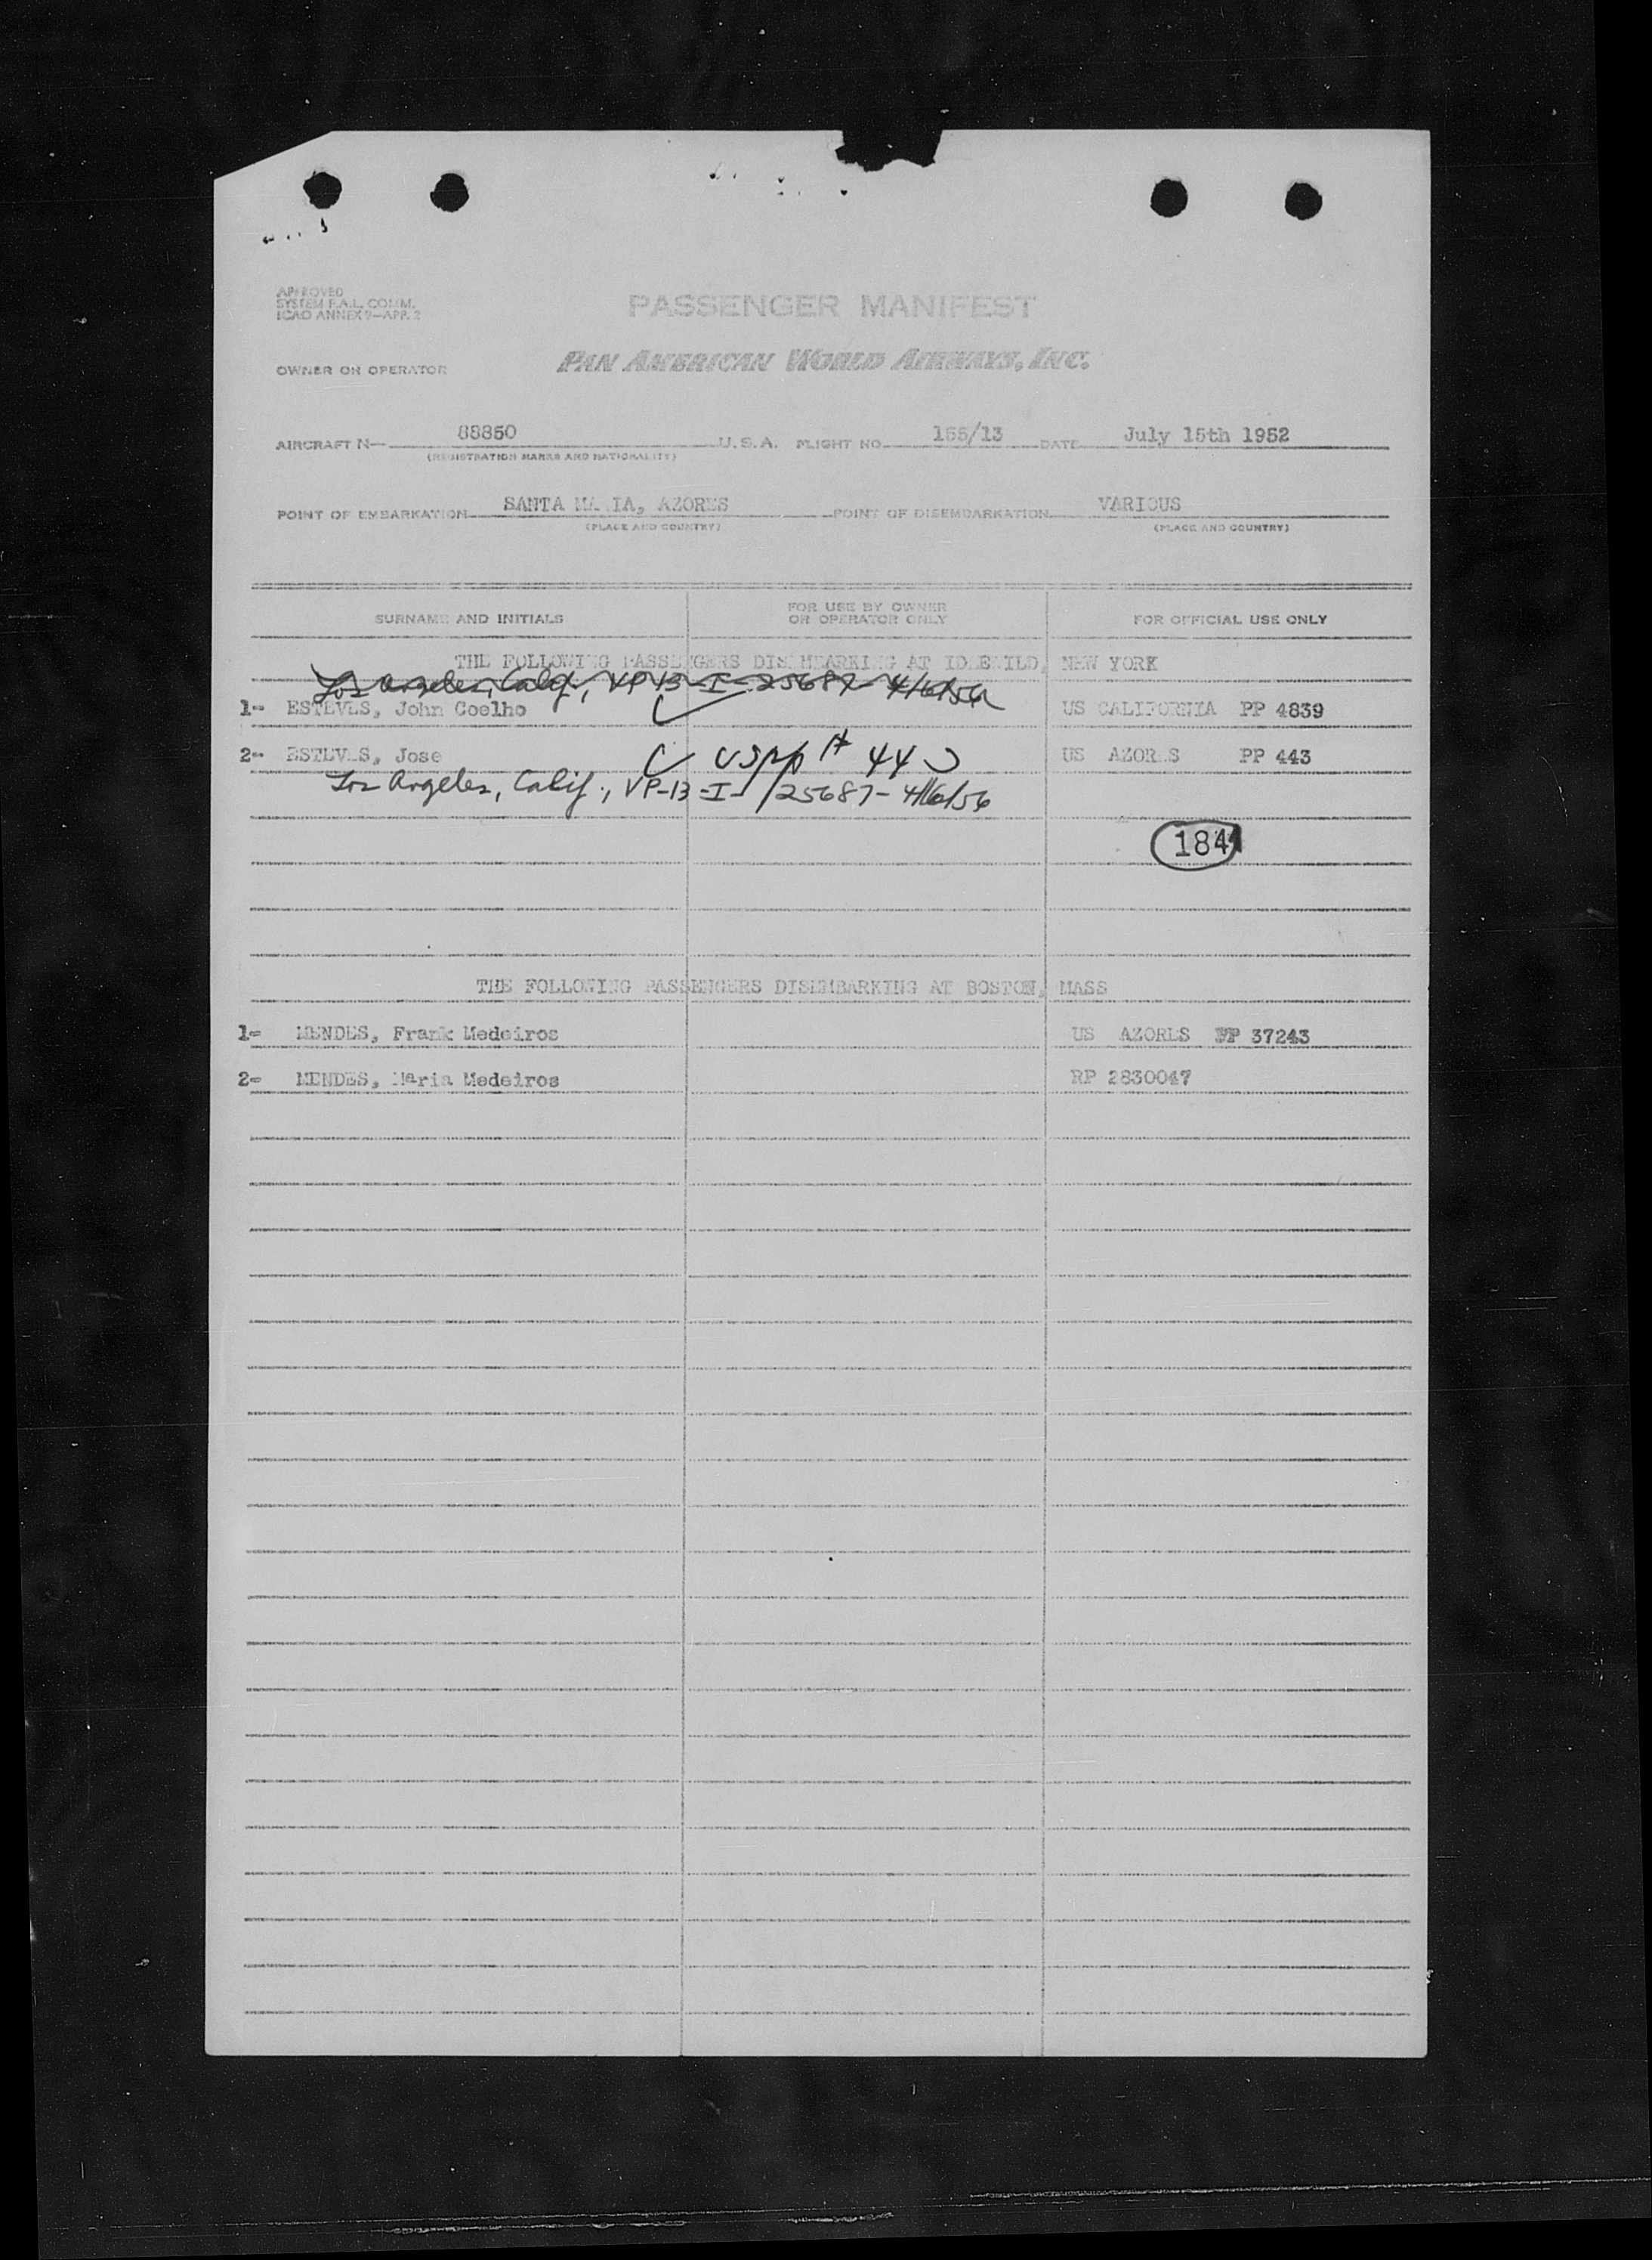 APPROVED
SYSTEM F.A.L. COMM.
ICAO ANNEX 9—APP. 2
PASSENGER MANIFEST
OWNER OR OPERATOR PAN AMERICAN WORLD AIRWAYS, INC.
AIRCRAFT N— 88850 U.S.A. FLIGHT NO. 155/13 DATE July 15th 1952
(REGISTRATION MARKS AND NATIONALITY)
POINT OF EMBARKATION SANTA MARIA, AZORES POINT OF DISEMBARKATION VARIOUS
(PLACE AND COUNTRY) (PLACE AND COUNTRY)
SURNAME AND INITIALS FOR USE BY OWNER OR OPERATOR ONLY FOR OFFICIAL USE ONLY
THE FOLLOWING PASSENGERS DISEMBARKING AT IDLEWILD, NEW YORK
Los Angeles, Calif., VP-13-I-25687-4/6/56
1- ESTEVES, John Coelho US CALIFORNIA PP 4839
2- ESTEVES, Jose US pp # 443 US AZORES PP 443
Los Angeles, Calif., VP-13-I-/25687-4/16/56
184
THE FOLLOWING PASSENGERS DISEMBARKING AT BOSTON, MASS
1- MENDES, Frank Medeiros US AZORES PP 37243
2- MENDES, Maria Medeiros RP 2830047